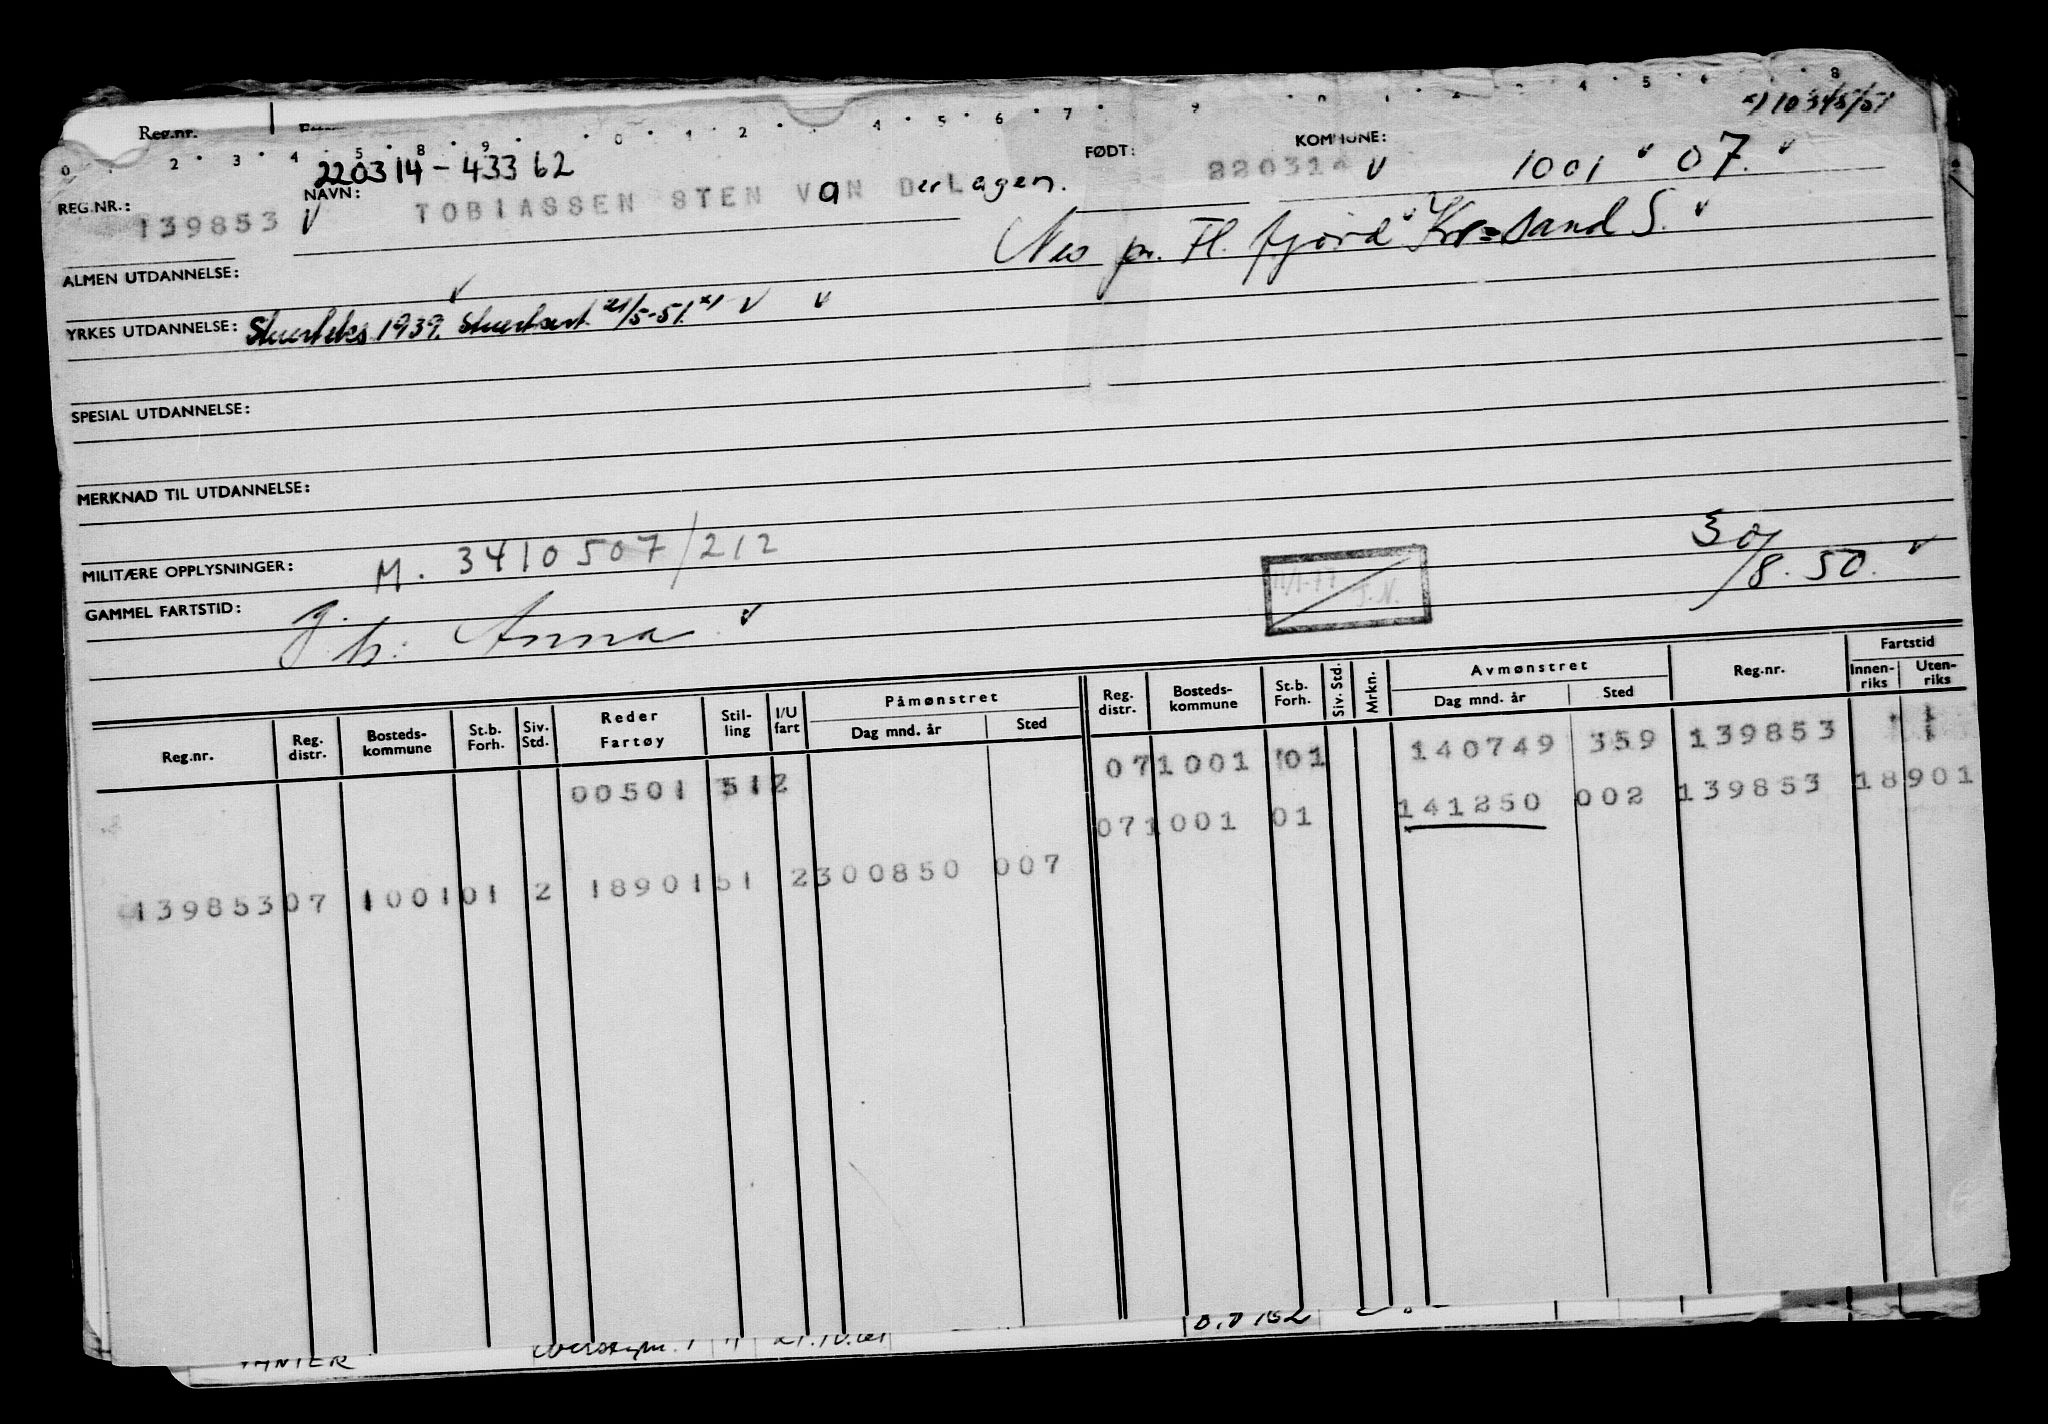 Reg.nr.
*) 10348/51
220314 - 43362
REG.NR.: 139853 NAVN: TOBIASSEN STEN VAN DerLagen. FØDT: 220314 KOMMUNE: 1001 07.
Nes pr. Fl. fjord Kr=sand S.
ALMEN UTDANNELSE:
YRKES UTDANNELSE: Stuerteks 1939. Stuertsert 21/5-51. *)
SPESIAL UTDANNELSE:
MERKNAD TIL UTDANNELSE:
MILITÆRE OPPLYSNINGER: M. 3410507/212
30/8.50.
GAMMEL FARTSTID: g.
h: Anna
Reg.nr. Reg. distr. Bosteds-kommune St.b. Forh. Siv. Std. Reder Fartøy Stil-ling I/U fart Påmønstret Dag mnd. år Sted Reg. distr. Bosteds-kommune St.b. Forh. Siv. Std. Mrkn. Avmønstret Dag mnd. år Sted Reg.nr. Fartstid Innen-riks Uten-riks
00501 512 071001 01 140749 359 139853
071001 01 141250 002 139853 18901
139853 07 1001 01 2 18901 51 2 300850 007